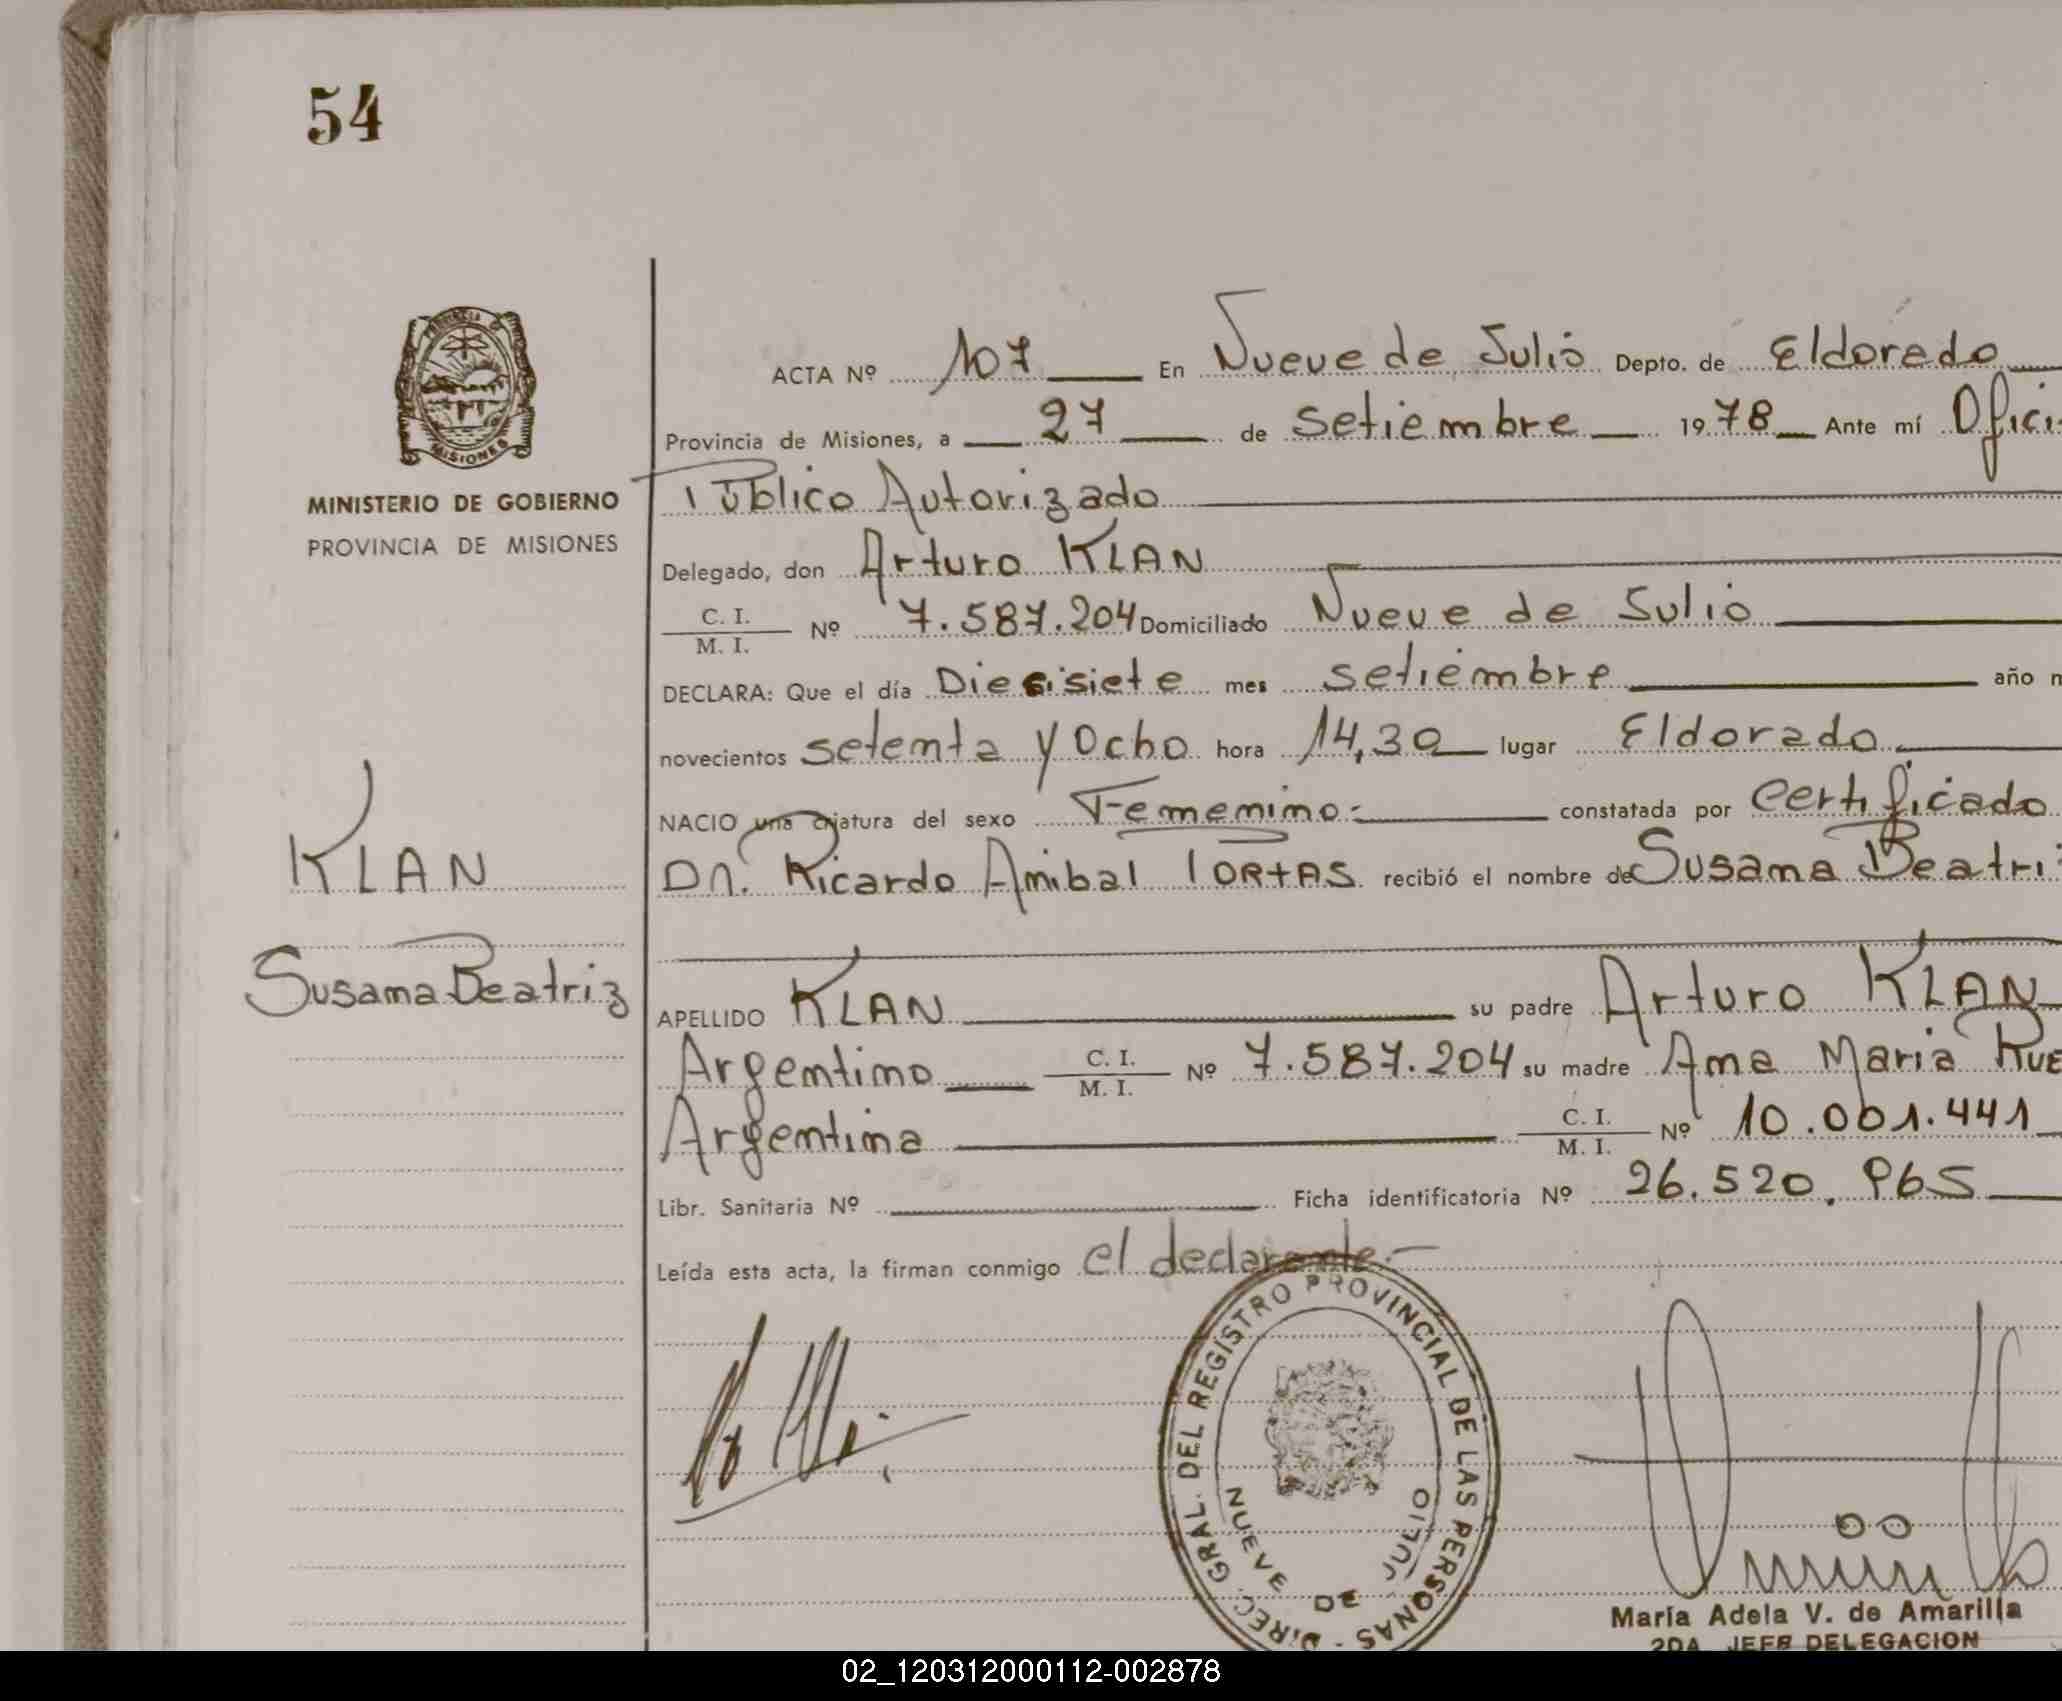 54
PROVINCIA DE
MISIONES
MINISTERIO DE GOBIERNO
PROVINCIA DE MISIONES
KLAN
Susana Beatriz
ACTA Nº 107 En Nueve de Julio Depto. de Eldorado
Provincia de Misiones, a 27 de setiembre 1978 Ante mí Ofici
Público Autorizado
Delegado, don Arturo KLAN
C. I.
M. I. Nº 7.587.204 Domiciliado Nueve de Julio
DECLARA: Que el día Diesisiete mes setiembre año m
novecientos setenta y Ocho hora 14,30 lugar Eldorado
NACIO una criatura del sexo Femenino.- constatada por certificado
Dn. Ricardo Anibal PORTAS recibió el nombre de Susana Beatri
APELLIDO KLAN su padre Arturo KLAN
Argentino C. I.
M. I. Nº 7.587.204 su madre Ana Maria Rue
Argentina C. I.
M. I. Nº 10.001.441
Libr. Sanitaria Nº Ficha identificatoria Nº 26.520.965
Leída esta acta, la firman conmigo el declarante.-
DIREC. GRAL. DEL REGISTRO PROVINCIAL DE LAS PERSONAS -
NUEVE DE JULIO
María Adela V. de Amarilla
2DA. JEFE DELEGACION
02_120312000112-002878